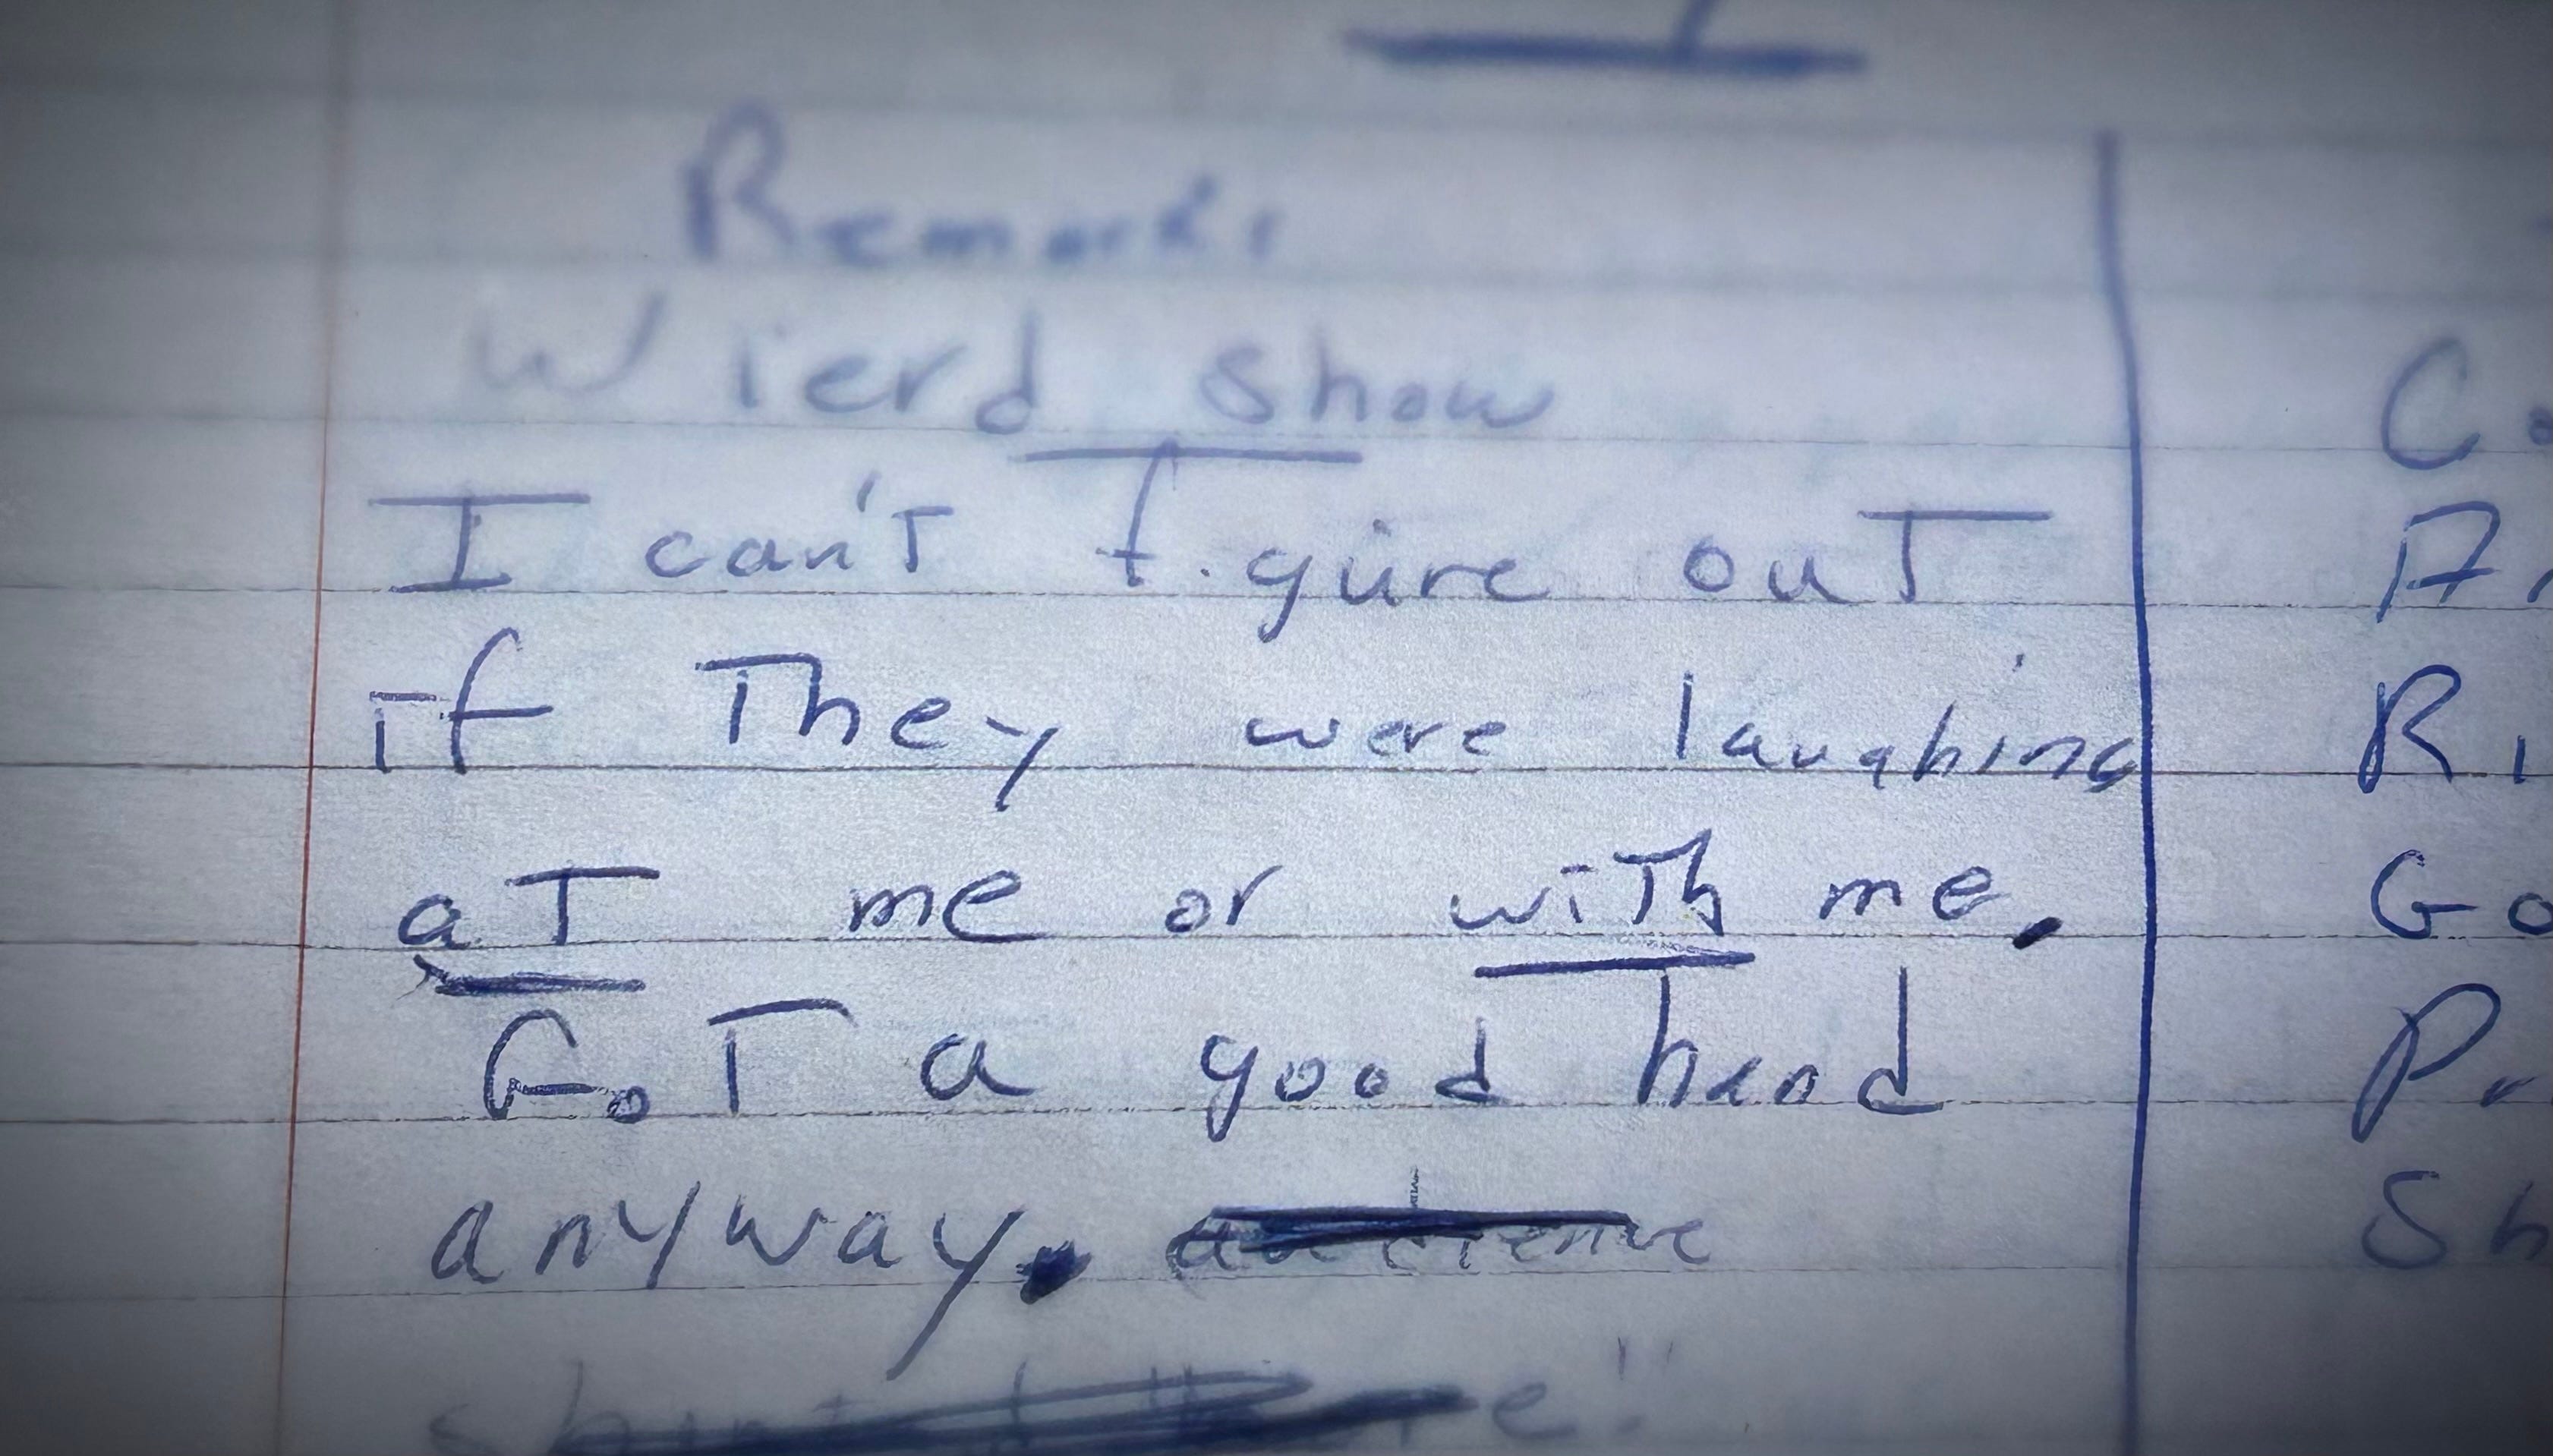 Remarks
Wierd show
I can't figure out
if They were laughing
aT me or with me.
GoT a good hand
anyway. audience